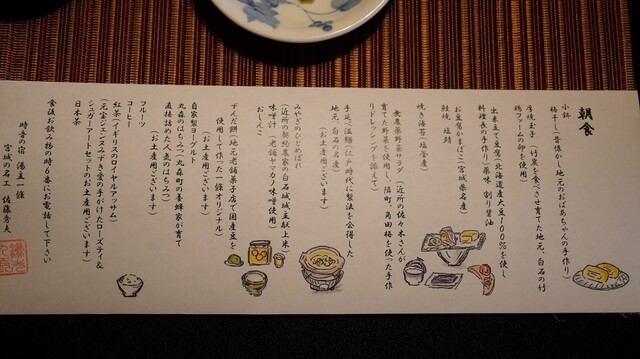 朝食
小鉢
梅干し(昔懐かし地元のおばあちゃんの手作り)
厚焼玉子(竹炭を食べさせ育てた地元、白石の竹
鶏ファームの卵を使用)
出来立て豆腐(北海道産大豆100%を使し
料理長の手作り)薬味 割り醤油
お豆腐かまぼこ(宮城県名産)
鮭焼、塩鯖
焼き海苔(塩釜産)
無農薬野菜サラダ(近所の佐々木さんが
育てた野菜を使用し、隣町、角田梅を使った手作
りドレッシングを添えて)
手延べ温麺(江戸時代に製法を会得した
地元、白石の名産)
(お土産ございます)
みやぎのひとめぼれ
(近所の契約農家の白石城城主献上米)
味噌汁(老舗ヤマカノ味噌使用)
おしんこ
ずんだ餅(地元老舗菓子店で国産豆を
使用して作った一條オリジナル)
(お土産ございます)
自家製ヨーグルト
丸森のはちみつ(丸森町の養蜂家が育て
直接詰めた人気のはちみつ)
(お土産ございます)
フルーツ
コーヒー
紅茶(イギリスのロイヤルアッサム)
(元宝ジェンヌみずき愛の手がけたローズティ&
シュガーアートセットのお土産ございます)
日本茶
食後お飲み物の時6番にお電話して下さい
時音の宿 湯主一條
宮城の名工 佐藤秀夫